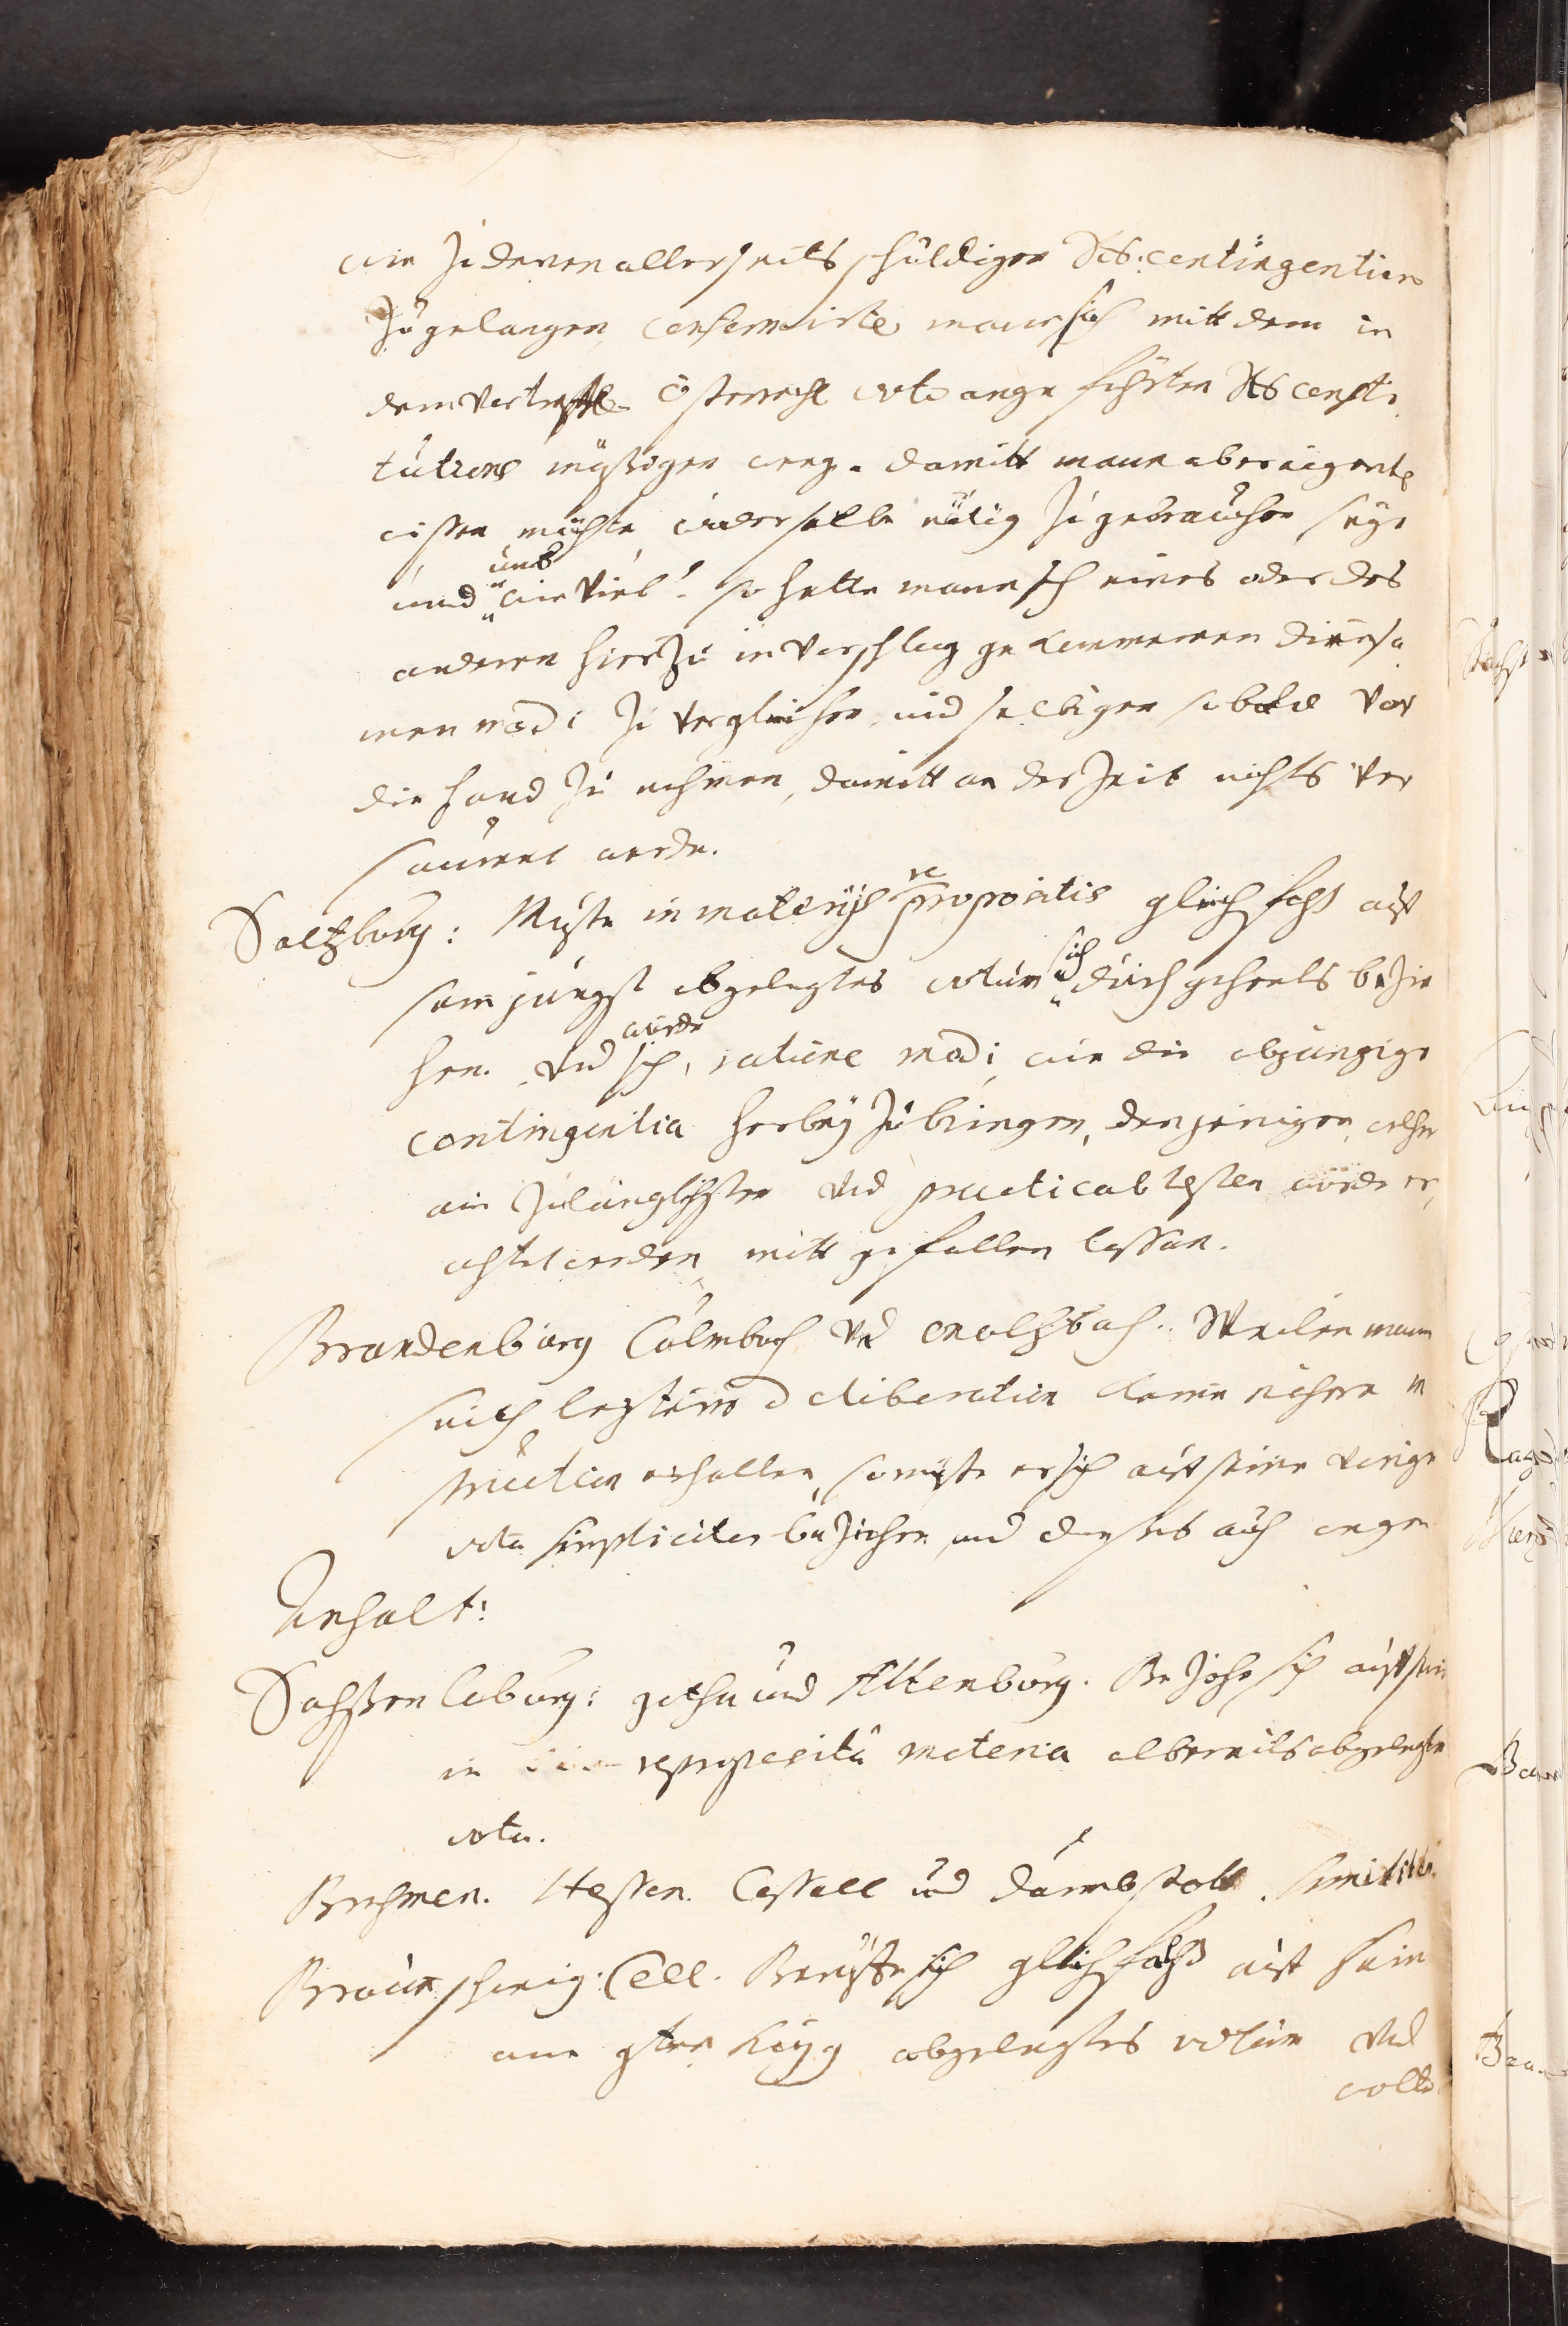 wie zu denen allerseits schuldigen Rs. contingentien
zu gelangen, conformirte mann sich mitt dem in
dem vortreffl. Österreichl voto angeführten Rs consti-
tutions mässigen weeg. damitt mann aber eigentl
wissen möchte, wie derselbe nötig zu gebrauchen seye
und umb wie viel? so hette mann sich eines oder des
anderen hierzu in Vorschlag gekommenen
men modi zu vergleichen, und selbigen sobald vor
die hand zu nehmen, damitt an der Zeit nichts ver
saumet werde.
Saltzburg: Müste in materijs re propositis gleichfahls auff
sein jüngst abgelegtes votum sich durchgehents bezie
hen. Und würde sich, ratione modi, wie die abgängige
contingentia herbey zu bringen, denjenigen, welcher
am zulänglichsten und practicablesten würde er,
achtet werden, mitt gefallen lassen.
Brandenburg Culmbach und Onoltzbach: Weilen mann
seith letzterer deliberation keine nähere in
struction erhalten, so müste er sich auff seine vorige
vota simpliciter beziehen, und deßhalb auch wegen
Anhalt:
Sachssen Coburg: gotha und Altenburg. Beziehe sich auff sein
in reproposita materia albereits abgelegte
vota.
Brehmen. Hessen. Cassell und Darmbstatt. Similiter.
Braunschweig: Cell. Beruffte sich gleichfahls auff sein
am abgelegtes votum Und
wolte